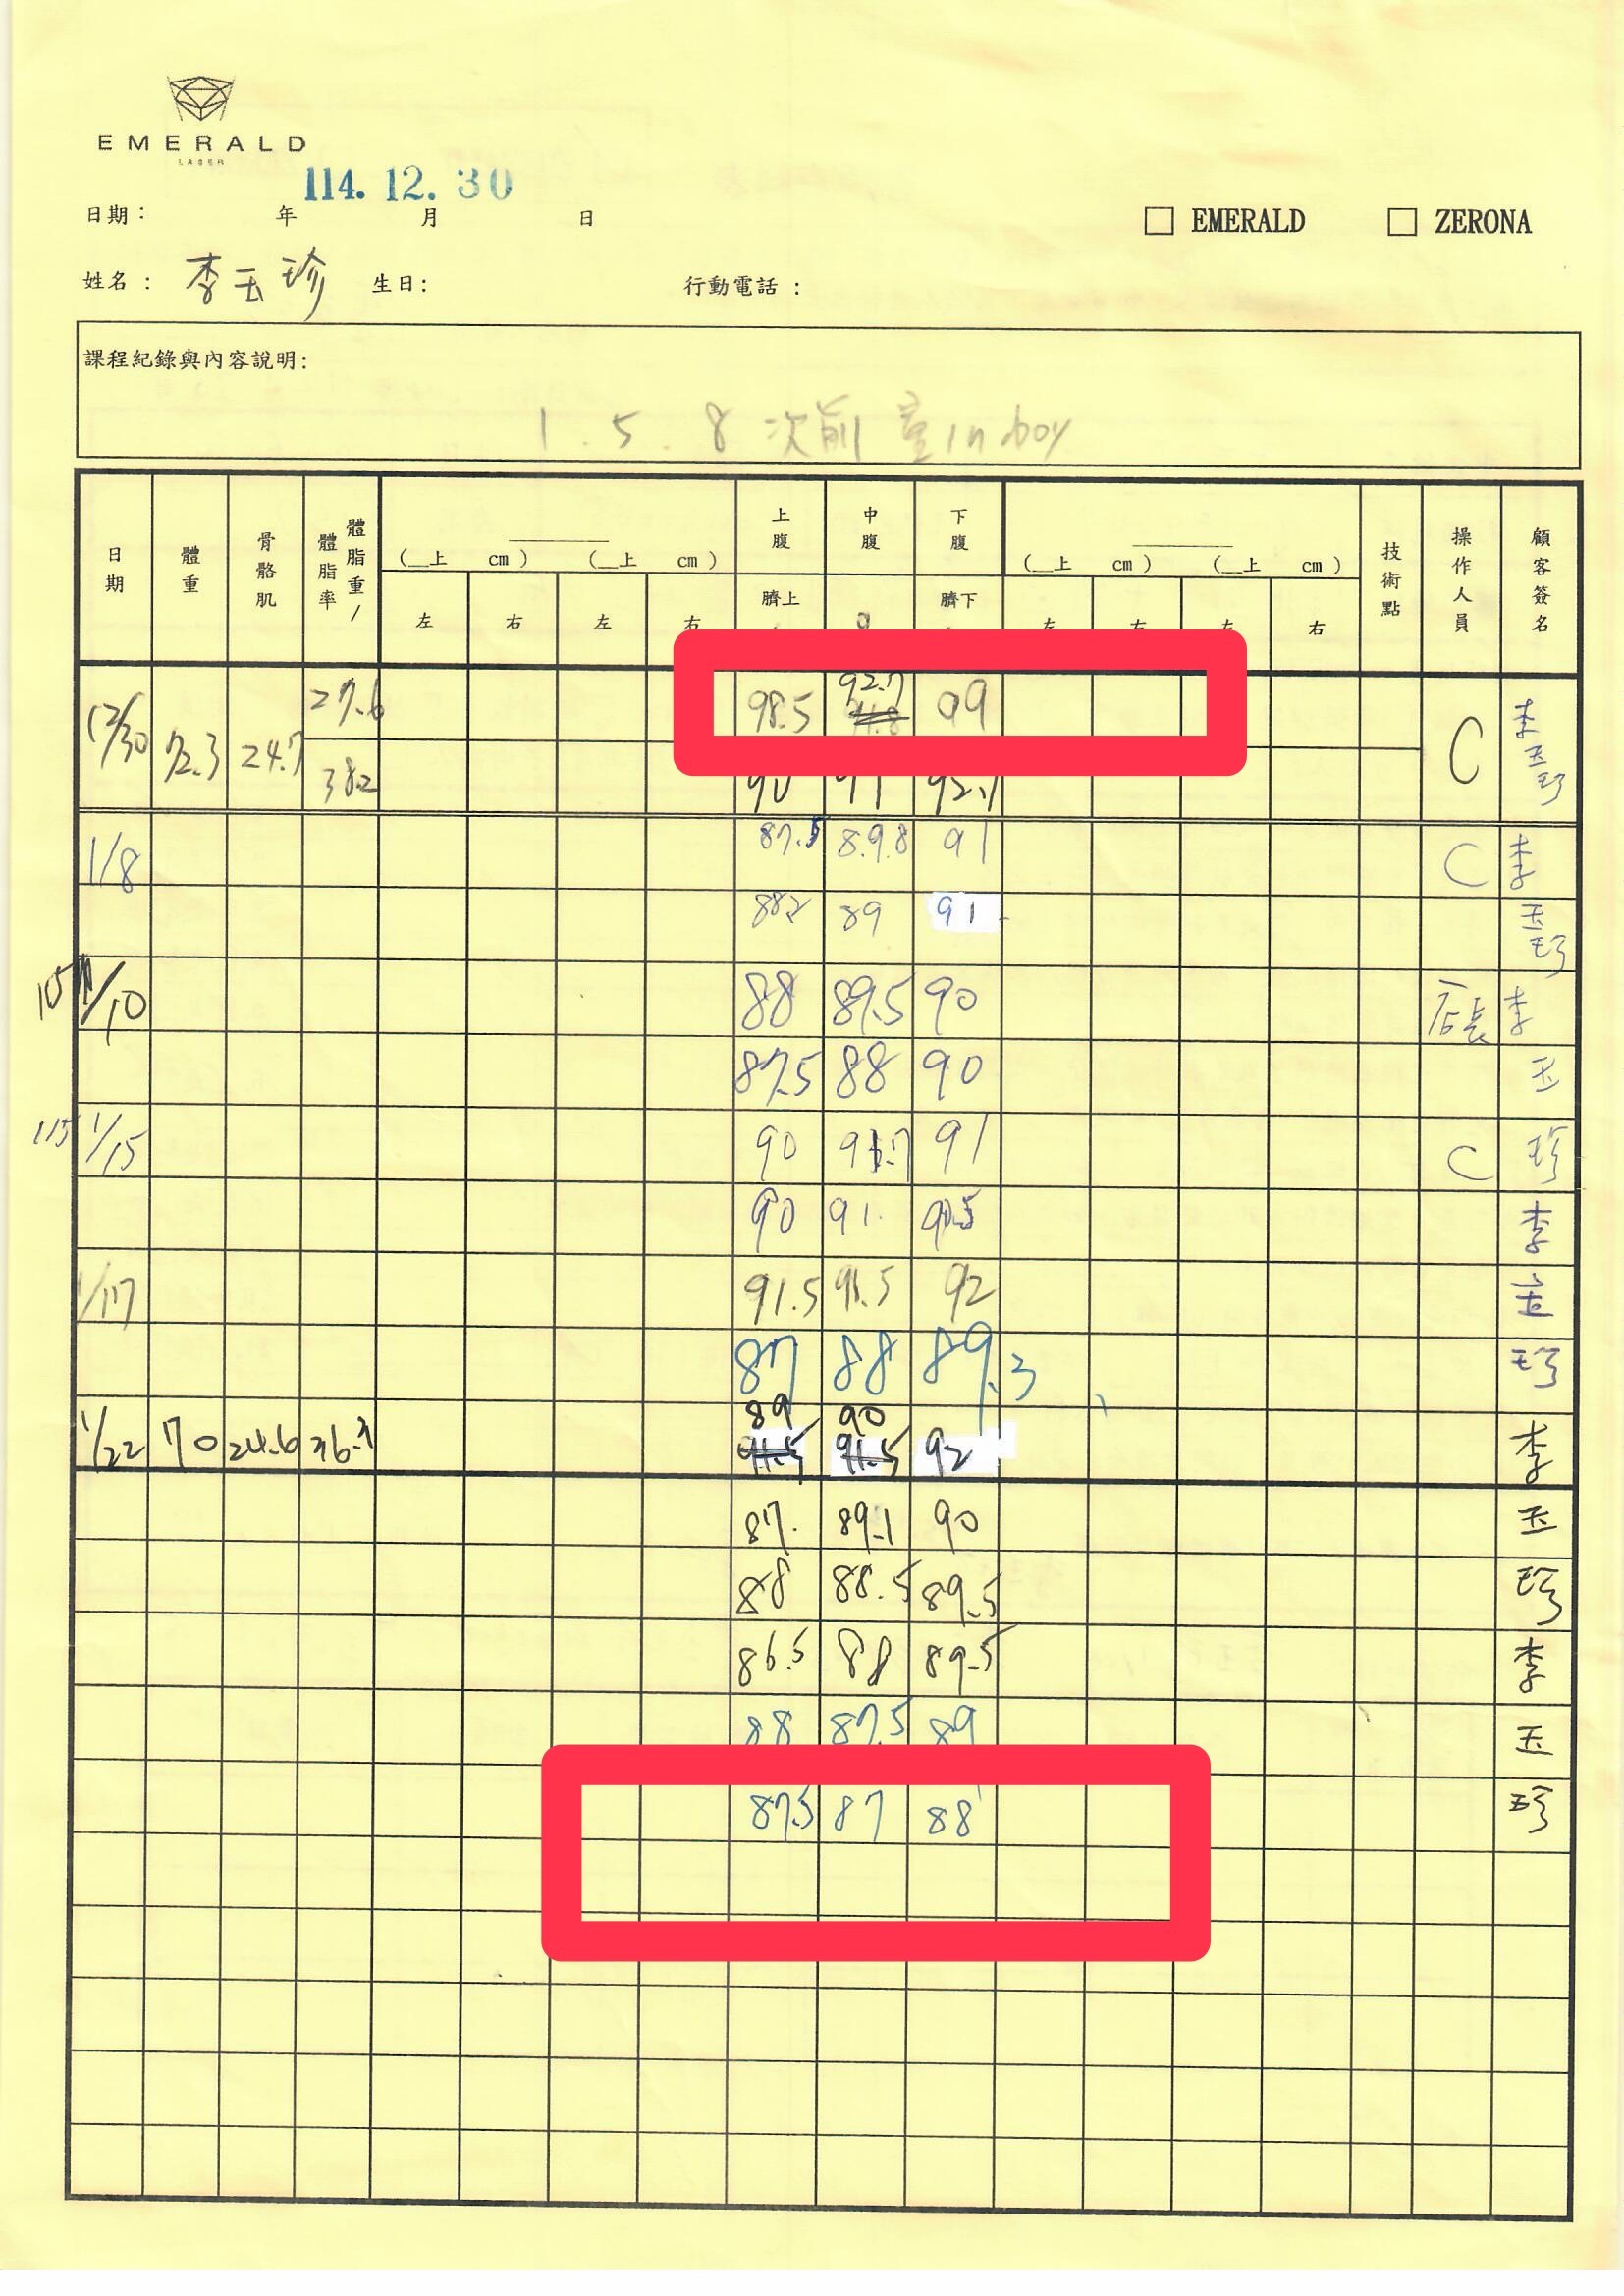 EMERALD
LASER
114. 12. 30
日期: 年 月 日
□ EMERALD □ ZERONA
姓名: 李玉珍 生日: 行動電話:
課程紀錄與內容說明:
1. 5. 8 次前 量 in boy
日期 體重 骨骼肌 體脂率 體脂重/ (__上 cm) (__上 cm) 上腹 中腹 下腹 (__上 cm) (__上 cm) 技術點 操作人員 顧客簽名
左 右 左 右 臍上 臍下 左 右 左 右
12/30 72.3 24.7 27.6 98.5 92.7 99 C 李玉珍
38.2 90 91 92.1
1/8 87.5 89.8 91 C 李
88.2 89 91 玉珍
1/10 88 89.5 90 店長 李
87.5 88 90 玉
115 1/15 90 91 C 珍
90 91. 90.5 李
1/17 91.5 91.5 92 玉
87 88 89.3 珍
89 90
1/22 70 24.6 91.5 91.5 92 李
87. 89.1 90 玉
88 88.5 89.5 珍
86.5 88 89.5 李
88 87.5 89 玉
87.5 87 88 珍